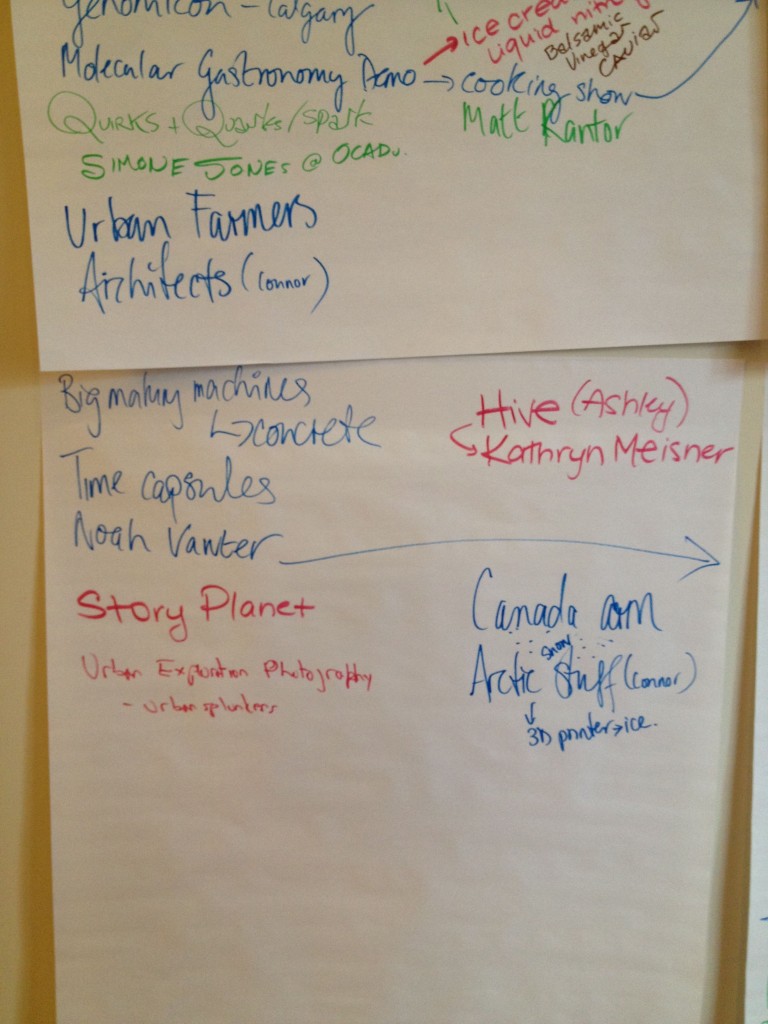 Genomicon - Calgary
Ice crea
liquid nitro
Balsamic
Vinegar
CAViar
Molecular Gastronomy Demo → cooking show
Matt Kantor
QUiRKS + QuaRks/Spark
SIMONE JONES @ OCADu.
Urban Farmers
Architects (Connor)
Big making machines
↳concrete
Time capsules
Noah Vawter
Hive (Ashley)
Kathryn Meisner
Story Planet
Urban Exploration Photography
- urban splunkers
Canada arm
Snow
Arctic Stuff (Connor)
↓
3D printer→ice.